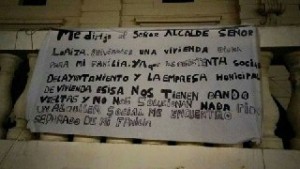 Me dirijo al Señor ALCALDE SEÑOR
UNA VIVIENDA
PARA MI FAMILIA, YA QUE SOCIAL
DEL AYUNTAMIENTO Y LA EMPRESA MUNICIPAL
DE VIVIENDA NOS TIENEN DANDO
VUELTAS Y NO NOS SOLUCIONAN NADA
UN ALQUILER SOCIAL ME ENCUENTRO
SEPARADO DE MI FAMILIA